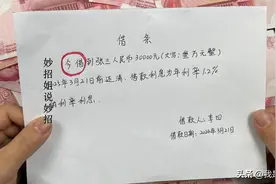 借条
今借到张三人民币30000元(大写:叁万元整)
25年3月21日前还清,借款利息为年利率12%
利率利息。
借款人:李四
借款日期:2024年3月21日
妙招姐说妙招